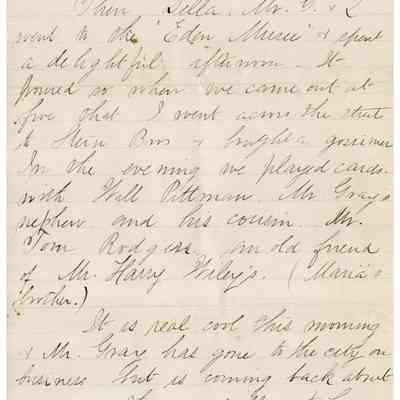 Then Della, Mr. G. & I
went to the "Eden Musee" & spent
a delightful afternoon. It
poured so when we came out at
five that I went across the street
to Stern Bros & bought a gossimer
In the evening we played cards
with Will Pittman Mr Gray's
nephew and his cousin Mr.
Tom Rodgers, an old friend
of Mr. Harry Wiley's. (Maria's
brother.)
It is real cool this morning
& Mr. Gray has gone to the city on
business but is coming back about